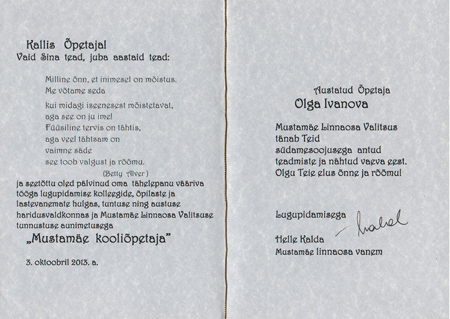 Kallis Õpetaja!
Vaid Sina tead, juba aastaid tead:
Milline õnn, et inimesel on mõistus.
Me võtame seda
kui midagi iseenesest mõistetavat,
aga see on ju ime!
Füüsiline tervis on tähtis,
aga veel tähtsam on
vaimne säde
see toob valgust ja rõõmu.
(Betty Alver)
ja seetõttu oled pälvinud oma tähelepanu vääriva
tööga lugupidamise kolleegide, õpilaste ja
lastevanemate hulgas, tuntuse ning austuse
haridusvaldkonnas ja Mustamäe Linnaosa Valitsuse
tunnustuse aunimetusega
„Mustamäe kooliõpetaja”
3. oktoobril 2013. a.
Austatud Õpetaja
Olga Ivanova
Mustamäe Linnaosa Valitsus
tänab Teid
südamesoojusega antud
teadmiste ja nähtud vaeva eest.
Olgu Teie elus õnne ja rõõmu!
Lugupidamisega
Helle Kalda
Mustamäe linnaosa vanem